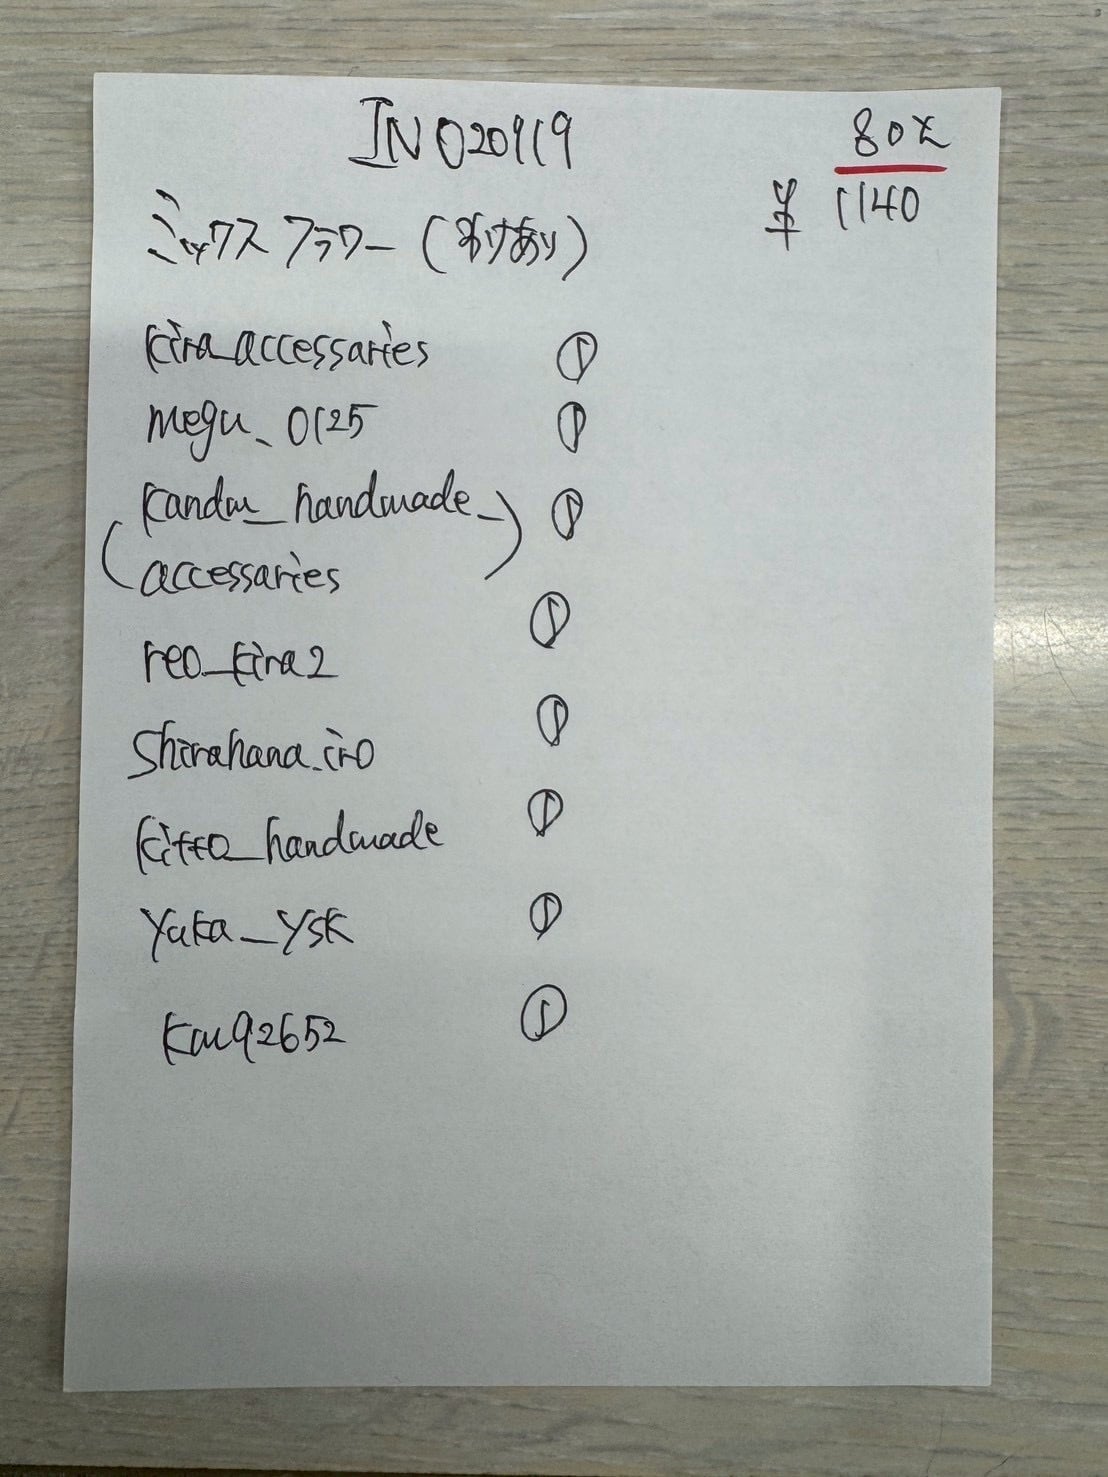 INO20919
80え
ミックスフラワー(わけあり)
¥ 1140
kira_accessaries ①
megu_0125 ①
(kandm_handmade_) ①
accessaries
reo_kira2 ①
shirahana.iro ①
kitto_handmade ①
yuka_ysk ①
kau92652 ①